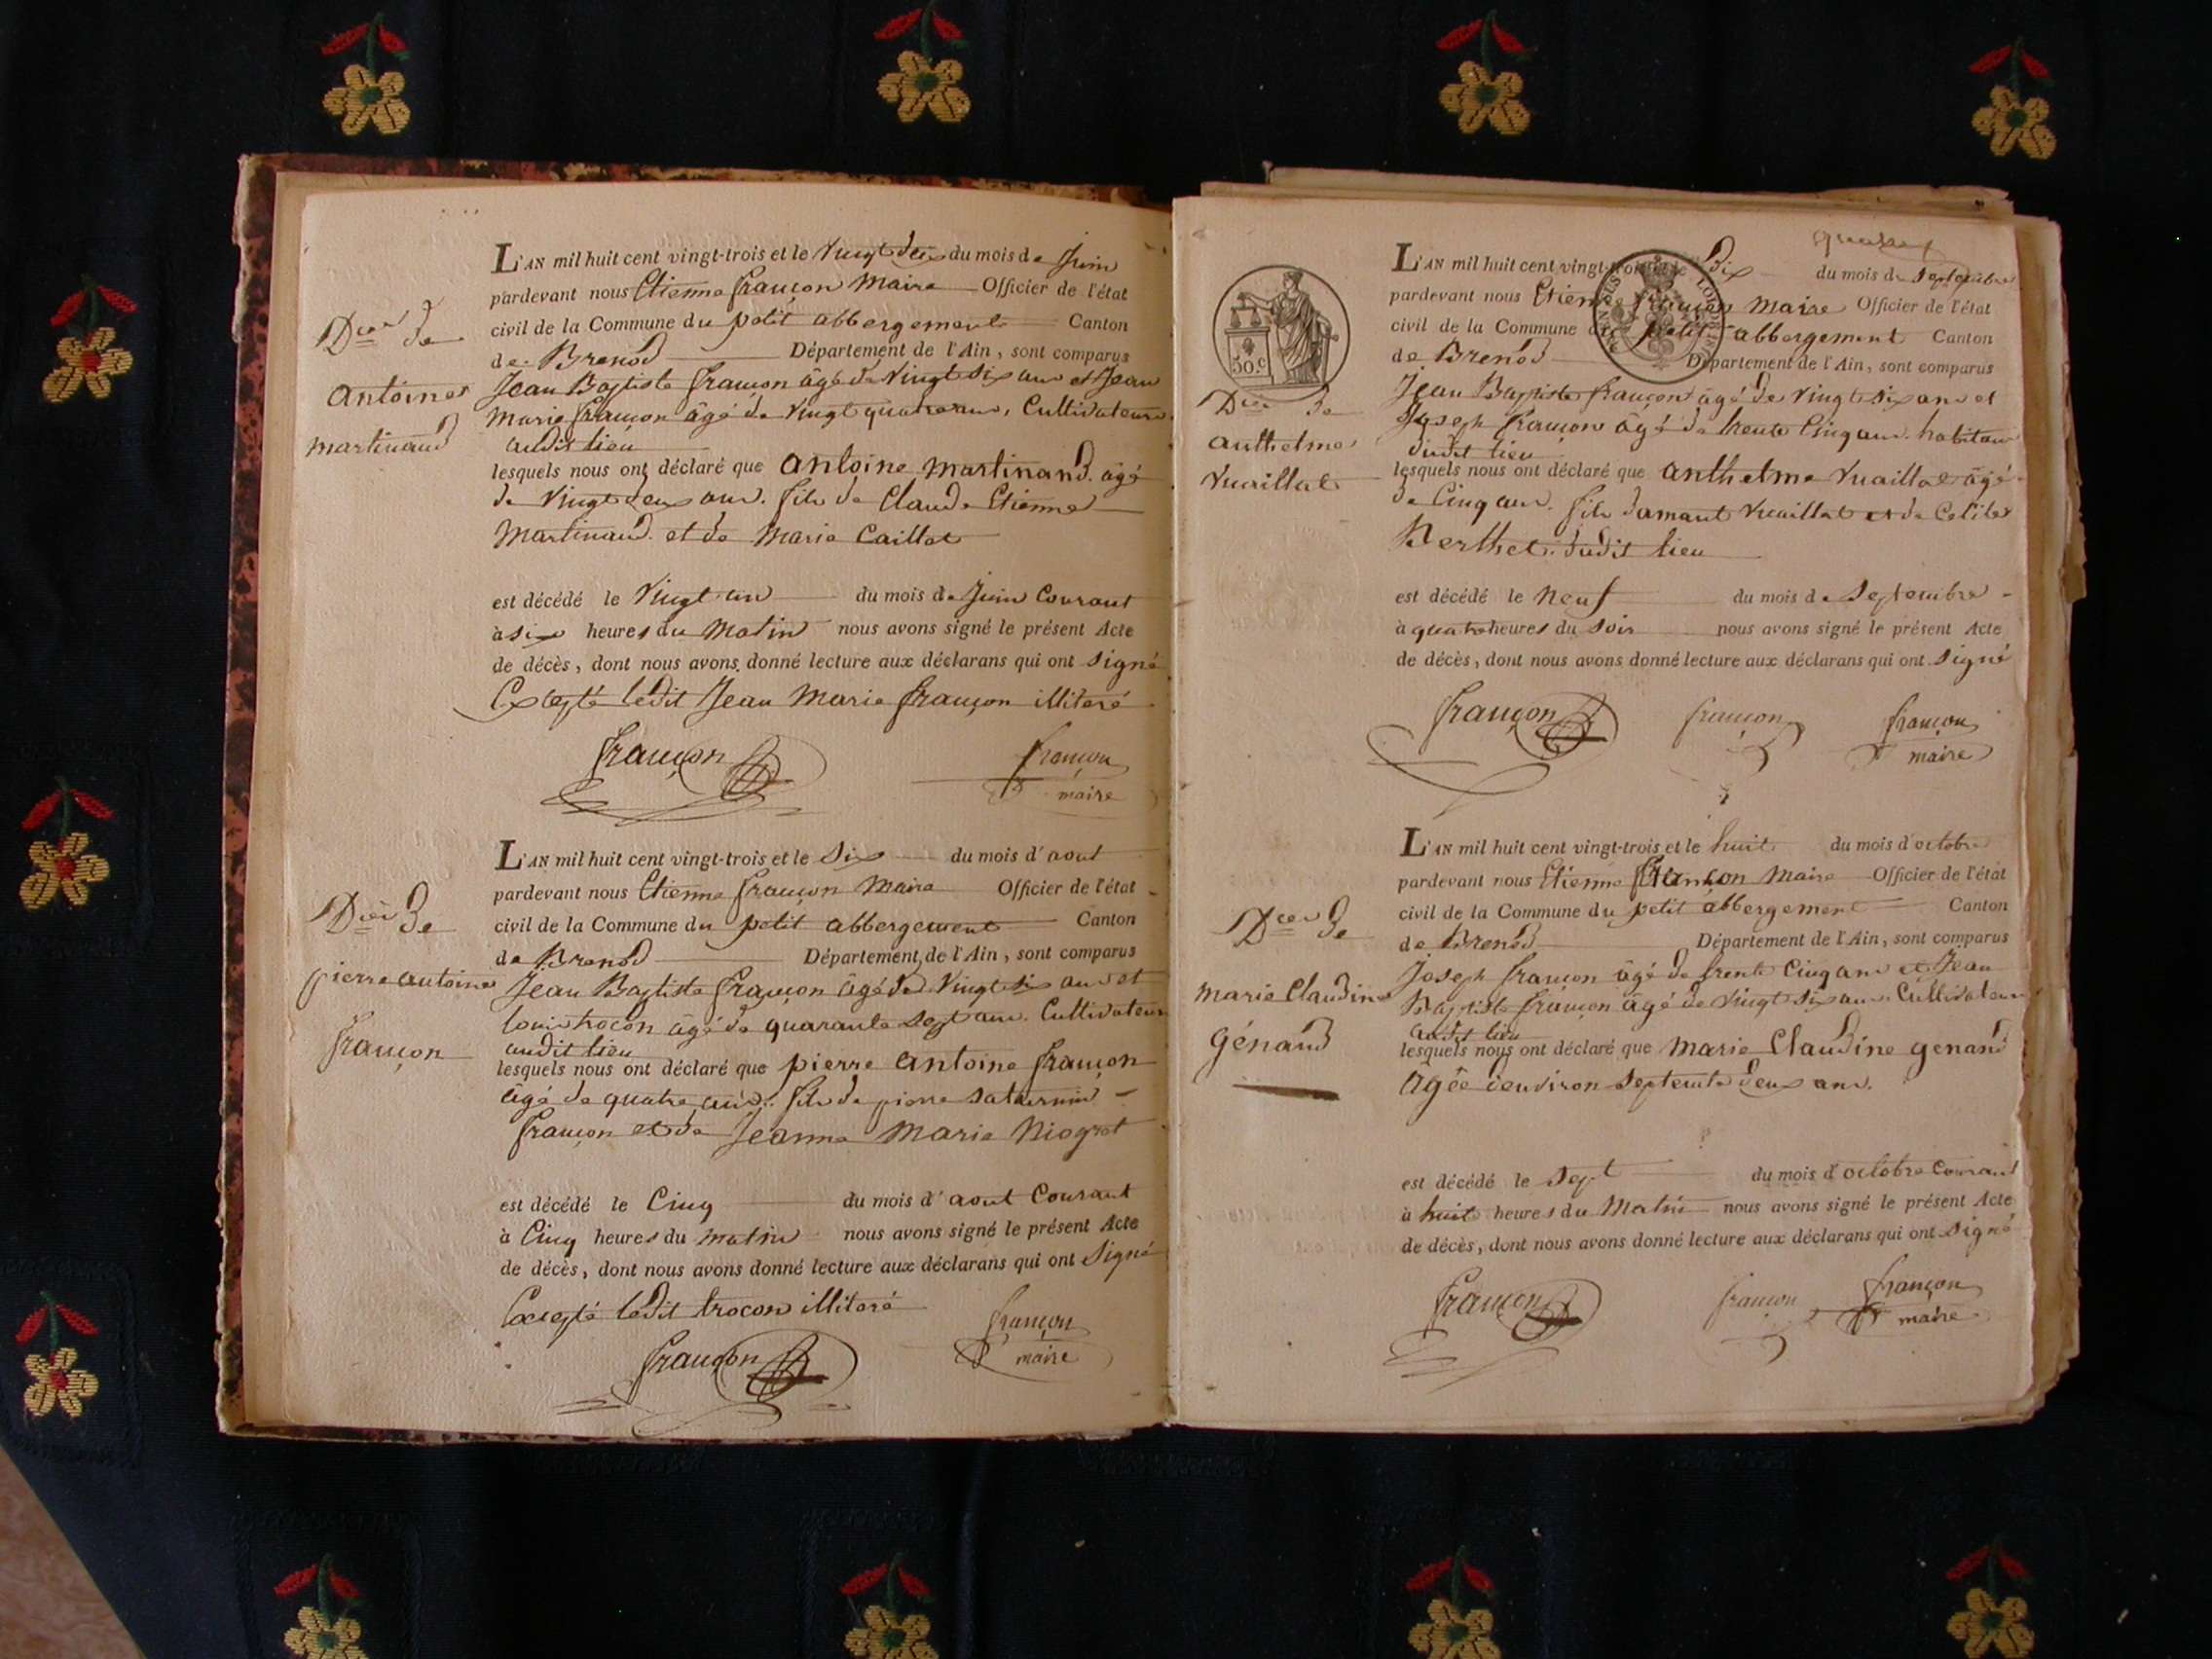 L'AN mil huit cent vingt-trois et le Vingt deux du mois de Juin
pardevant nous Etienne françon Maire Officier de l'état
civil de la Commune du petit abbergement Canton
de Brenod Département de l'Ain, sont comparus
Dces de
antoine
martinand
Jean Baptiste françon âgé de Vingt six ans et Jean
Marie françon âgé de Vingt quatre ans, Cultivateurs
audit lieu
lesquels nous ont déclaré que antoine martinand. âgé
de Vingt deux ans. fils de Claude Etienne
Martinand. et de Marie Caillat
est décédé le Vingt un du mois de Juin Courant
à six heures du Matin nous avons signé le présent Acte
de décès, dont nous avons donné lecture aux déclarans qui ont signé
Excepté ledit Jean Marie françon illiteré
françon françon
maire
L'AN mil huit cent vingt-trois et le Six du mois d'aout
pardevant nous Etienne françon Maire Officier de l'état
civil de la Commune du petit abbergement Canton
de Brenod Département de l'Ain, sont comparus
Dces de
pierre antoine
françon
Jean Baptiste françon âgé de Vingt six ans et
louis trocon âgé de quarante sept ans. Cultivateurs
audit lieu
lesquels nous ont déclaré que pierre antoine françon
âgé de quatre ans. fils de pierre saturnin
françon et de Jeanne Marie Niogret
est décédé le Cinq du mois d'aout Courant
à Cinq heures du matin nous avons signé le présent Acte
de décès, dont nous avons donné lecture aux déclarans qui ont Signé
Excepté ledit trocon illiteré
françon françon
maire
L'AN mil huit cent vingt-trois et le Dix du mois de Septembre
pardevant nous Etienne françon Maire Officier de l'état
civil de la Commune du petit abbergement Canton
de Brenod Département de l'Ain, sont comparus
50.c
Dces de
anthelme
Vuaillat
Jean Baptiste françon âgé de Vingt six ans et
Joseph françon âgé de trente Cinq ans. habitans
dudit lieu
lesquels nous ont déclaré que anthelme Vuaillat âgé
de Cinq ans. fils damant Vuaillat et de
Berthet. dudit lieu
est décédé le Neuf du mois de Septembre
à quatre heures du Soir nous avons signé le présent Acte
de décès, dont nous avons donné lecture aux déclarans qui ont signé
françon françon françon
maire
L'AN mil huit cent vingt-trois et le huit du mois d'octobre
pardevant nous Etienne françon Maire Officier de l'état
civil de la Commune du petit abbergement Canton
de Brenod Département de l'Ain, sont comparus
Dces de
marie Claudine
génand
Joseph françon âgé de trente Cinq ans et Jean
Baptiste françon âgé de Vingt six ans. Cultivateurs
audit lieu
lesquels nous ont déclaré que Marie Claudine genand
âgée denviron septente deux ans.
est décédé le sept du mois d'octobre Courant
à huit heures du Matin nous avons signé le présent Acte
de décès, dont nous avons donné lecture aux déclarans qui ont Signé
françon françon françon
maire